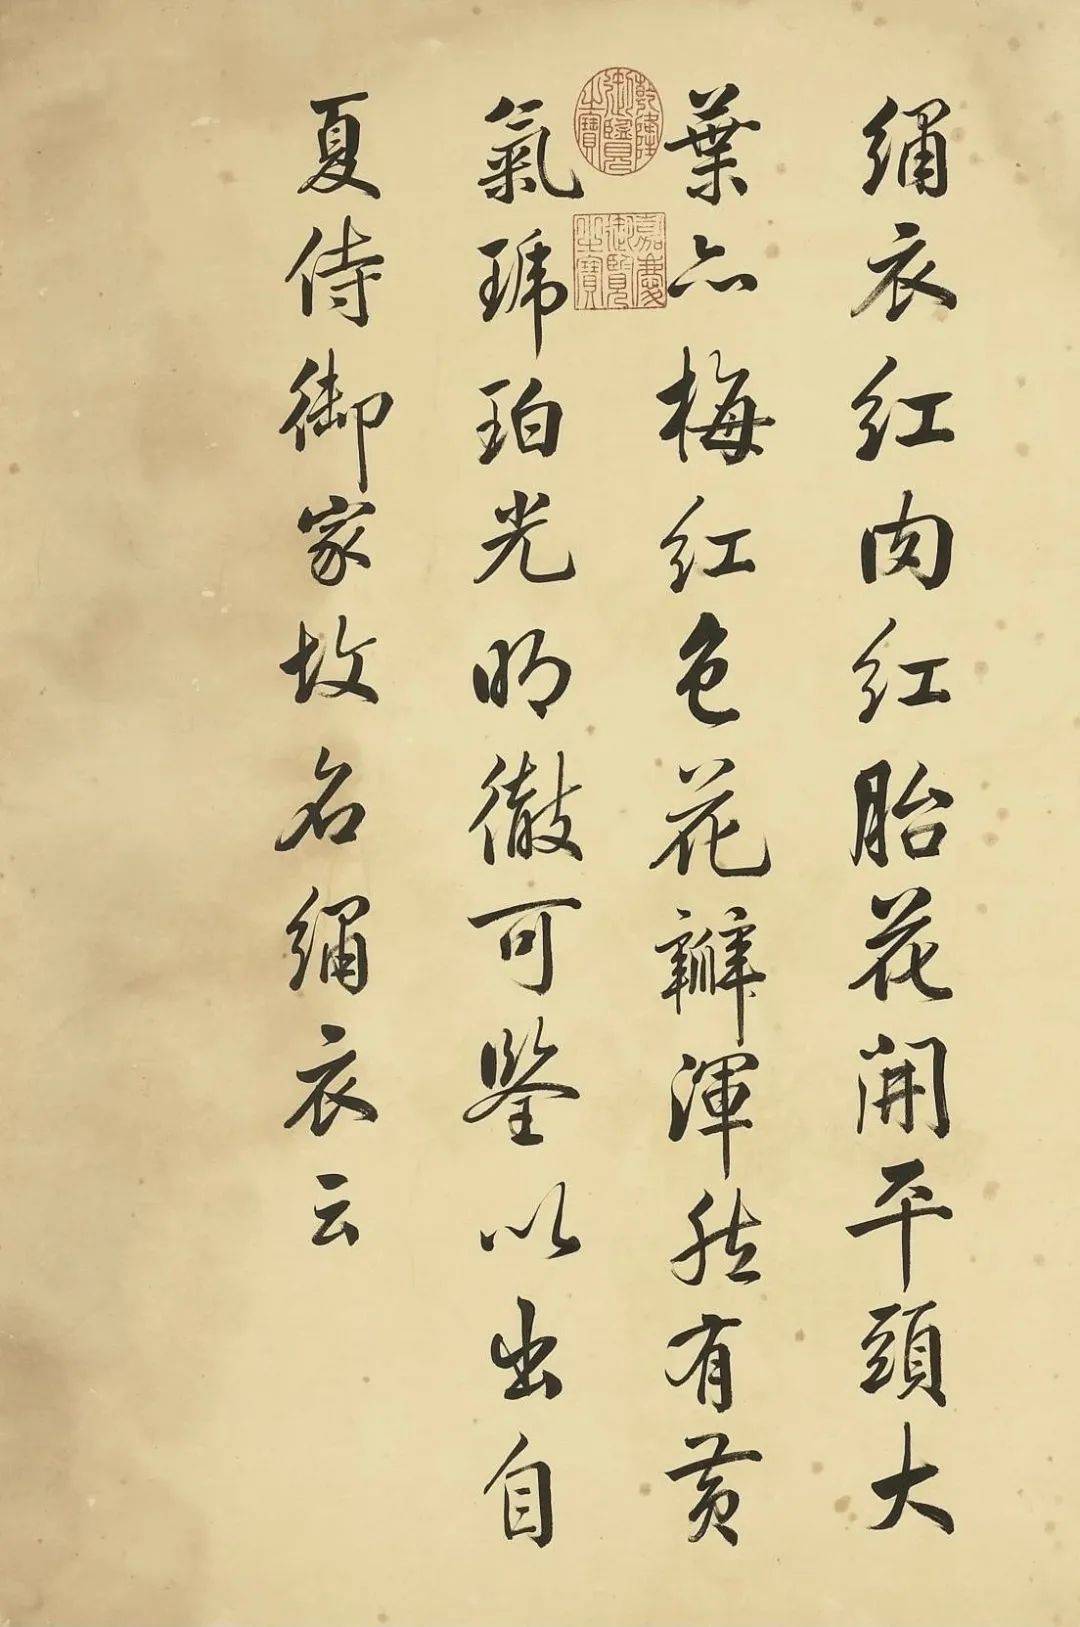 繡衣紅肉紅胎花開平頭大
葉亦梅紅色花瓣渾然有黃
氣琥珀光明徹可鑒以出自
夏侍御家故名繡衣云
乾隆御覽之寶
嘉慶御覽之寶